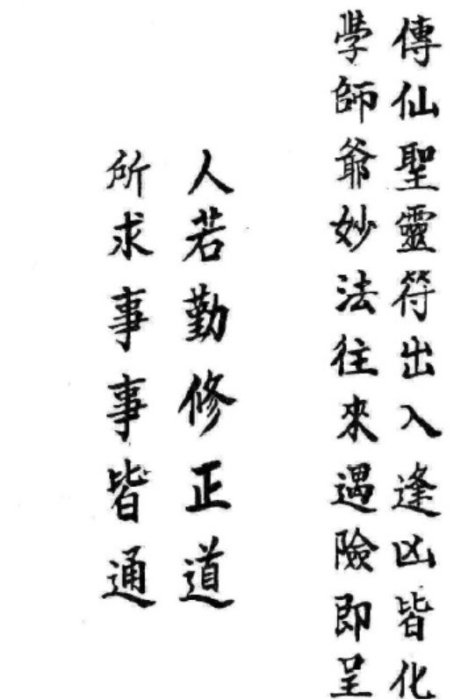 傳仙聖靈符出入逢凶皆化
學師爺妙法往來遇險即呈
人若勤修正道
所求事事皆通